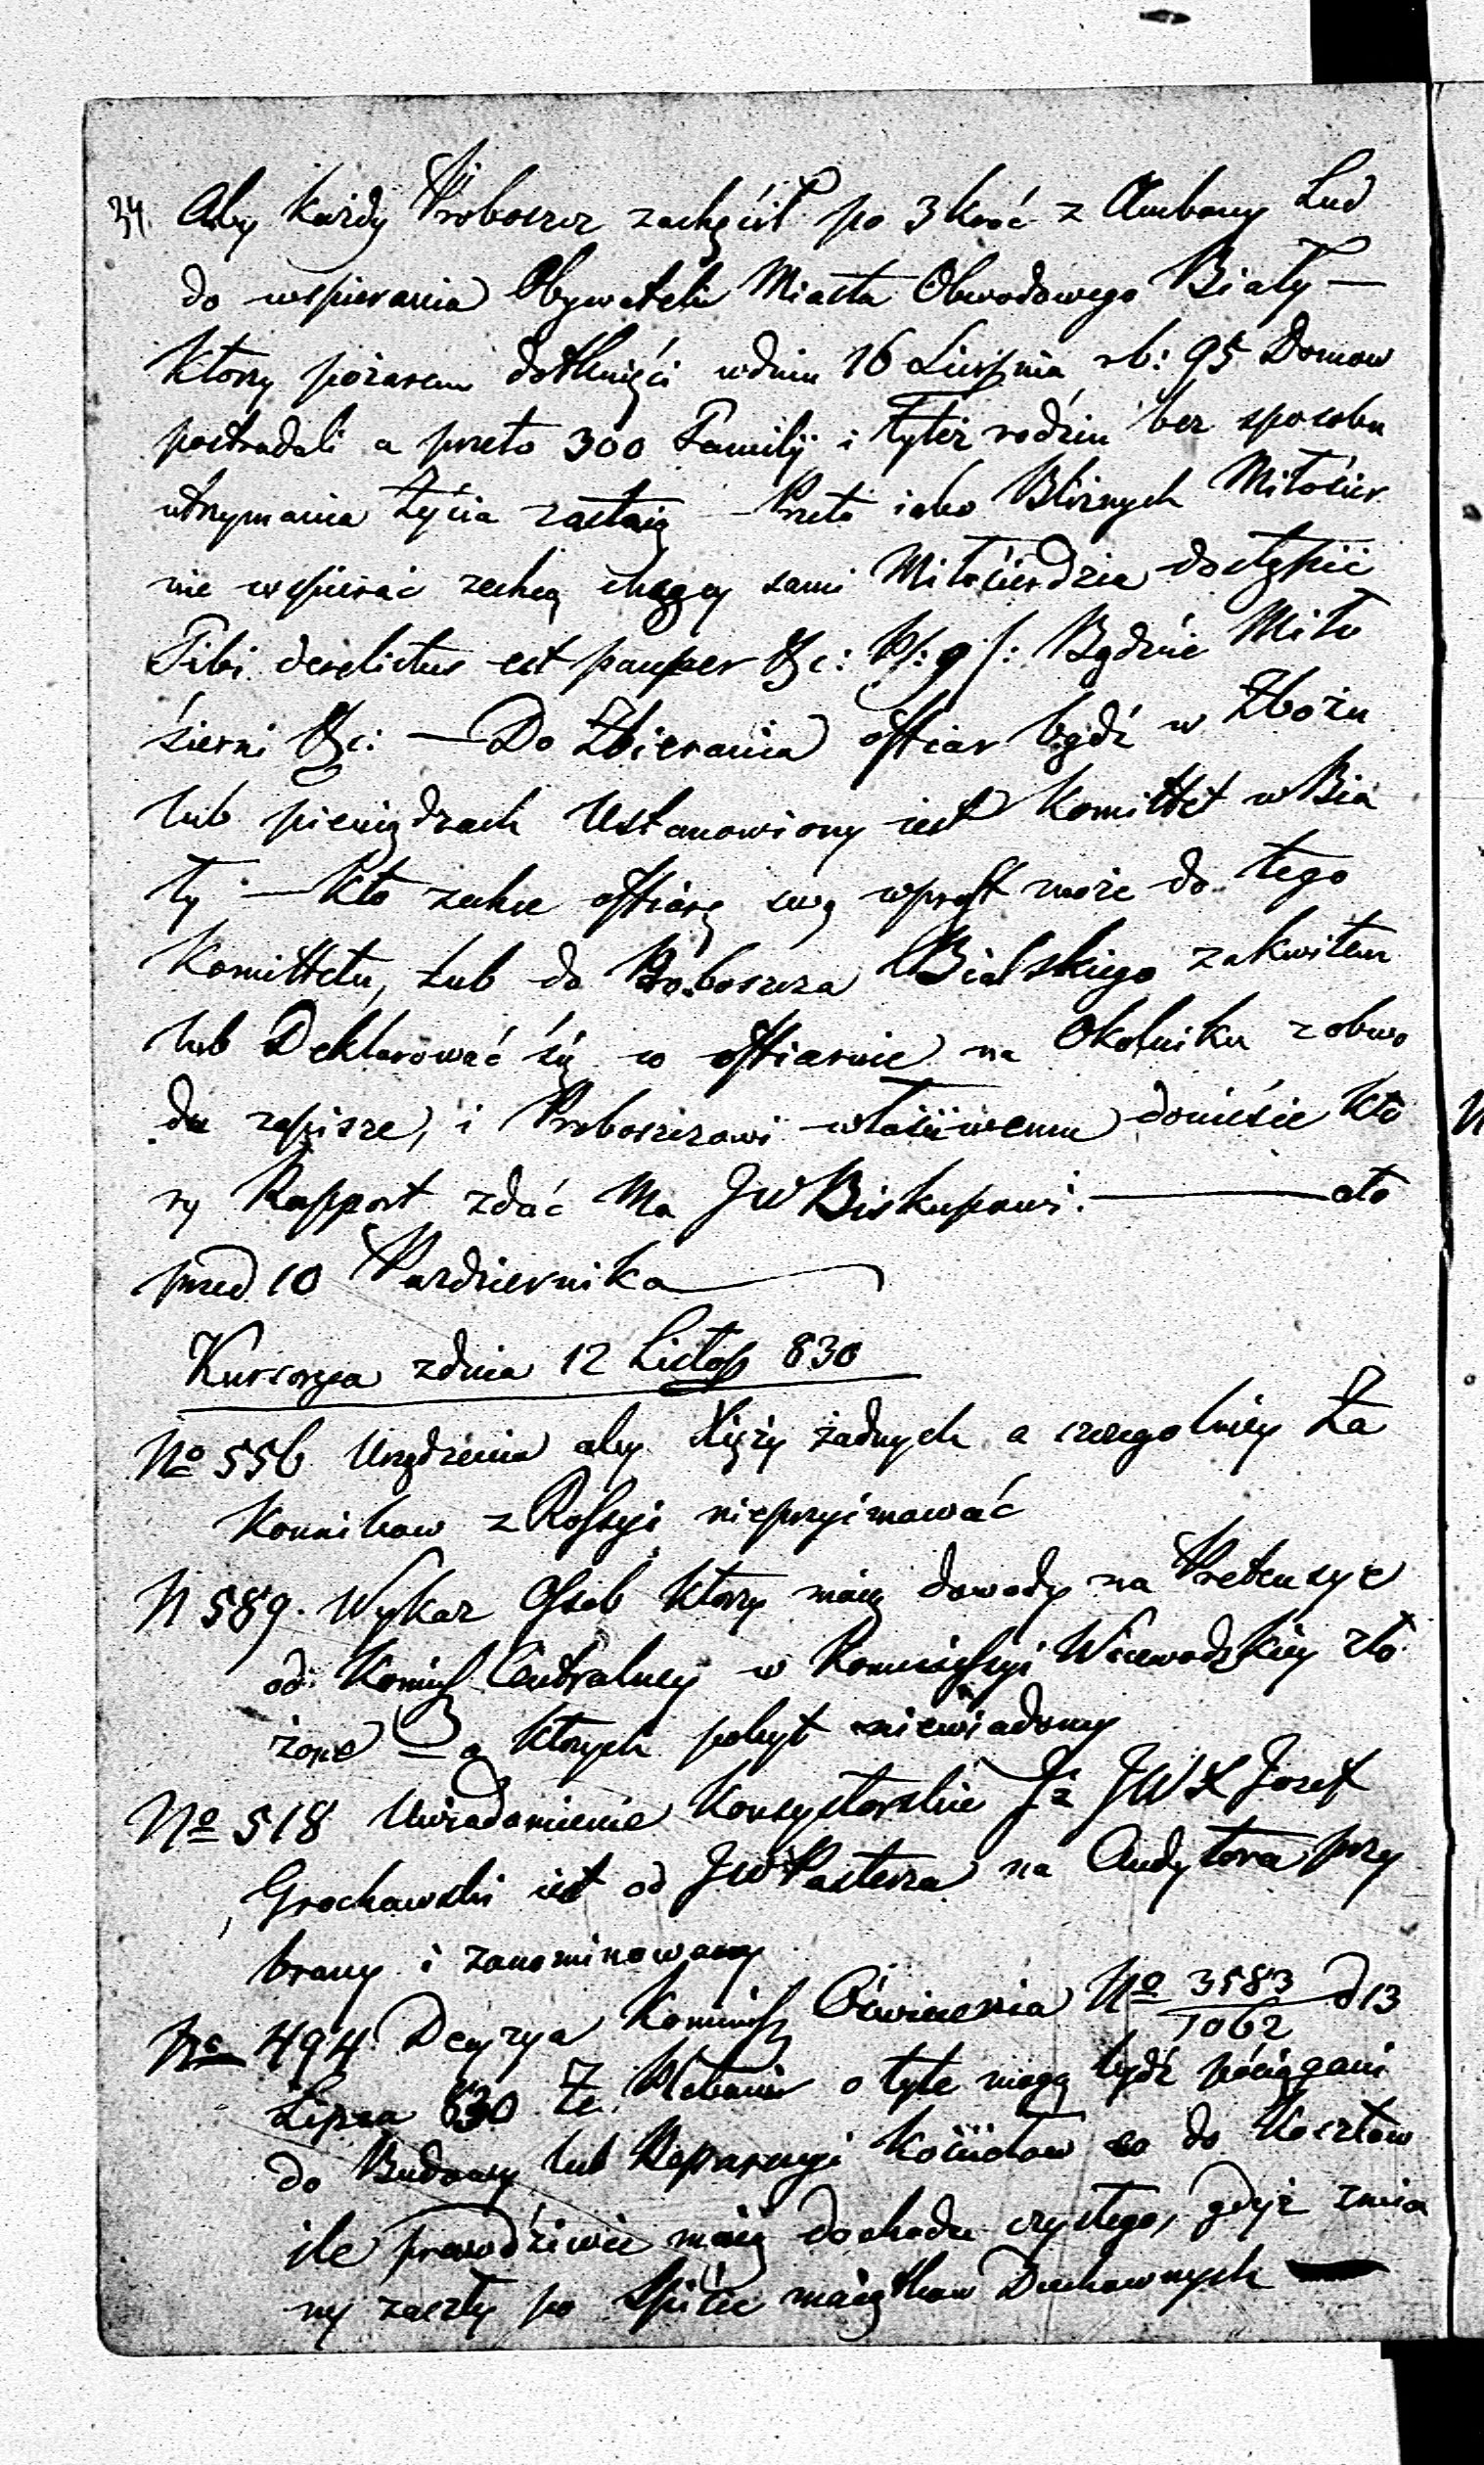 34. Aby każdy Proboszcz zachęcił po 3 kroć z Ambony Lud
do wspierania Obywateli Miasta Obwodowego Biały —
Ktorzy pożarem dotknięci w dniu 16 Sierpnia rb: 95 Domow
postradali a przeto 300 Familij i tyleż rodzin bez sposobu
utrzymania życia zostaią — Przeto iako Bliźnych Miłosier
nie wspierać zechcą chcący sami Miłosierdzia dostąpić
Tibi derelictus est pauper &c: Ps: 9 /: Bądźcie Miło
śierni &c: — Do Zbierania offiar bądź w Zbożu
lub pieniądzach Ustanowiony iest Komittet w Bia
ły — Kto zechce offiarę swą wprost może do tego
Komittetu, lub do Proboszcza Bialskiego za kwitem
lub Deklarować się w offiarnie na Okolniku z obwo
du zapisze, i Proboszczowi właściwemu doniesie Kto
ry Rapport zdać Ma JW Biskupowi. — ato
przed 10 Pazdziernika
Kursorya z dnia 12 Listop 830
No 556 Urządzenia aby Xięży żadnych a szczegolniey Za
Konnikow z Rossyi nieprzyimować
N 589. Wykaz Osob Ktorzy maią dowody na Pretensye
od Komiss Centralney w Kommissyi Wojewodzkiey zło
żone — a Ktorych pobyt niewiadomy
No 518 Uwiadomienie Konsystorskie Iż JWX Jozef
Grochowski iest od JW Pasterza na Audytora przy
brany i zanominowany
No 494 Decyzya Kommiss Oświecenia No 3583/1062 d 13
Lipca 830 Że Plebanie o tyle mogą bydź pociągani
do Budowy lub Reparacyi Kościołow co do Kosztow
ile prawdziwie maią dochodu czystego, gdyż zmia
ny zaszły po Spisie maiątkow Duchownych